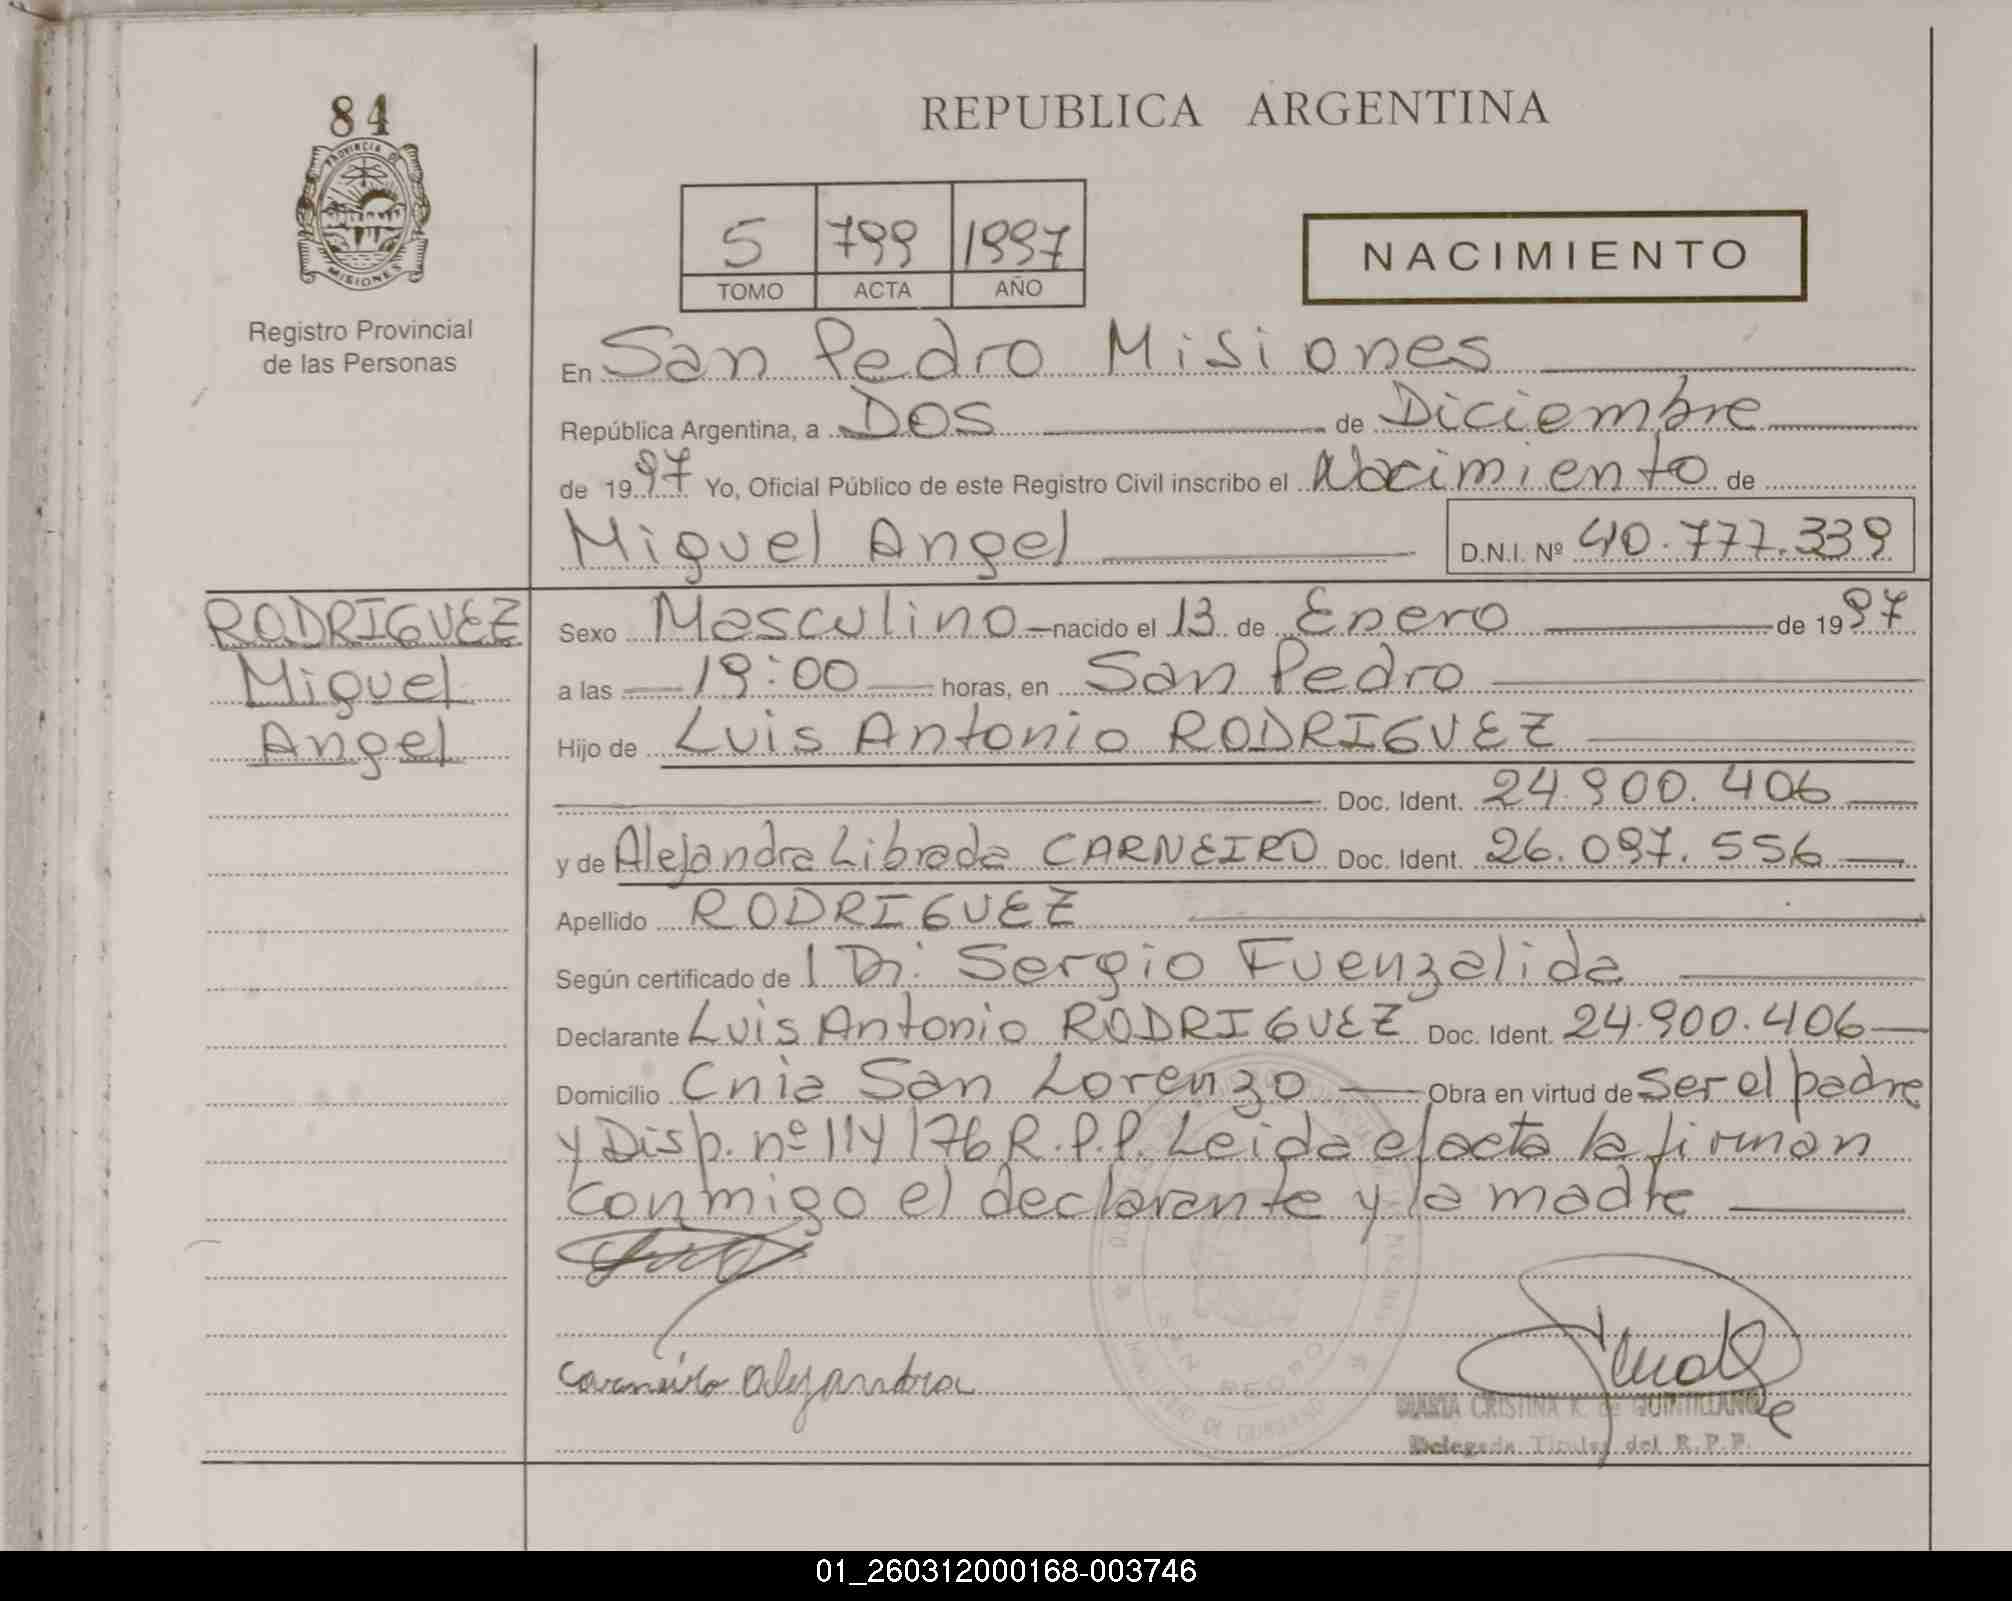 84
PROVINCIA DE
MISIONES
Registro Provincial
de las Personas
REPUBLICA ARGENTINA
5 799 1997
TOMO ACTA AÑO
NACIMIENTO
En San Pedro Misiones
República Argentina, a DOS de Diciembre
de 1997 Yo, Oficial Público de este Registro Civil inscribo el Nacimiento de
Miguel Angel D.N.I. Nº 40.777.339
RODRIGUEZ
Miguel
Angel
Sexo Masculino nacido el 13 de Enero de 1997
a las 19:00 horas, en San Pedro
Hijo de Luis Antonio RODRIGUEZ
Doc. Ident. 24.900.406
y de Alejandra Librada CARNEIRO Doc. Ident. 26.097.556
Apellido RODRIGUEZ
Según certificado de 1 Dr. Sergio Fuenzalida
Declarante Luis Antonio RODRIGUEZ Doc. Ident. 24.900.406
Domicilio Cnia San Lorenzo Obra en virtud de ser el padre
y Disp. nº 114/76 R.P.P. Leida el acta la firman
conmigo el declarante y la madre
Carneiro Alejandra
MARIA CRISTINA R. de QUINTILLANO
Delegada Titular del R.P.P.
SAN PEDRO
01_260312000168-003746